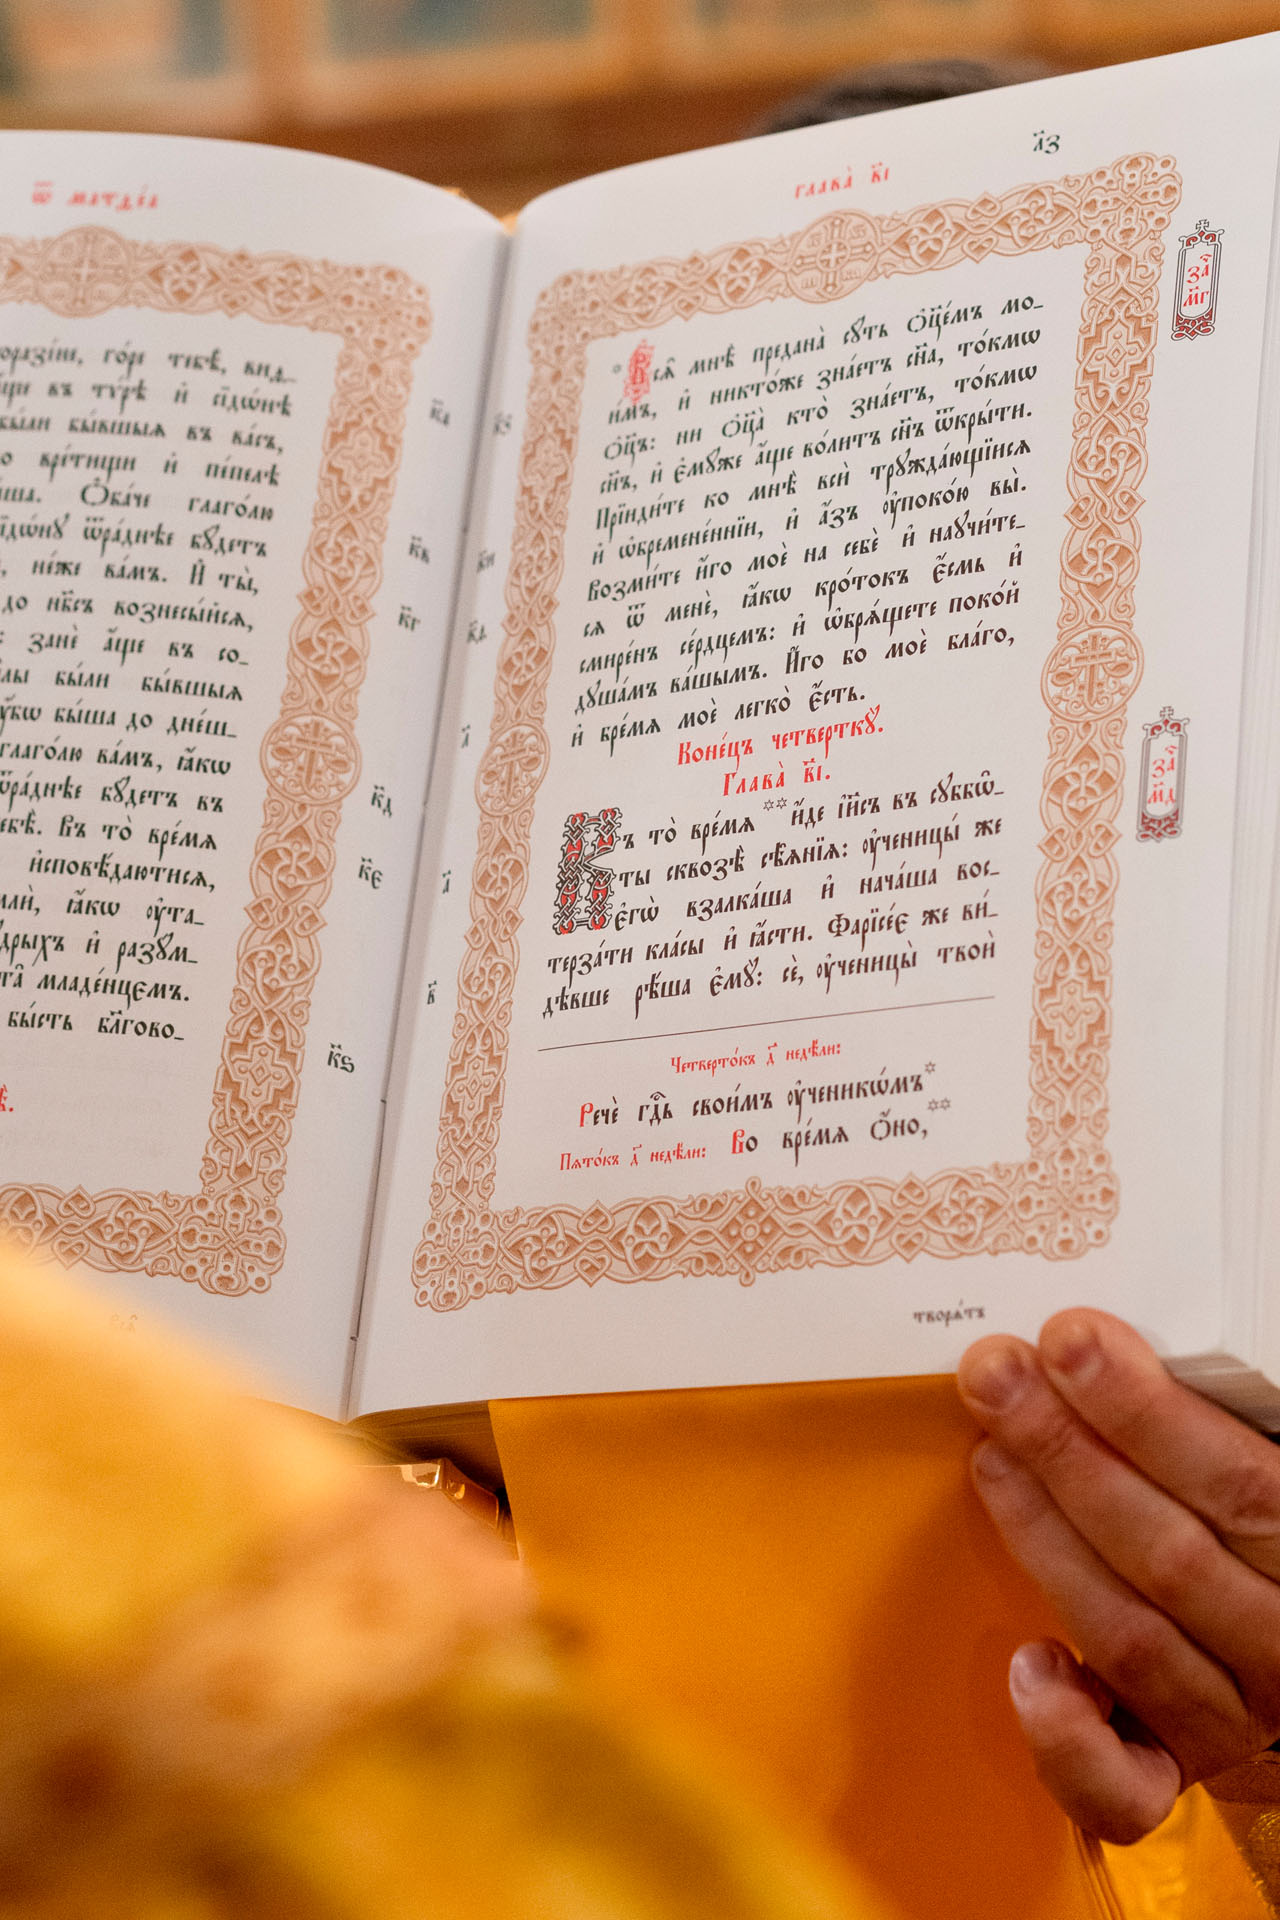 ѿ матѳе́а
ора́зїне, го́ре тебѣ̀, виѳ_
въ тѵ́рѣ и҆ сїдѡ́нѣ
бы́ли бы́вшыѧ въ ва́съ,
вре́тищи и҆ пе́пелѣ
Ѻ҆ба́че глаго́лю
ѿра́днѣе бꙋ́детъ
не́же ва́мъ. И҆ ты̀,
до нб҃съ вознесы́йсѧ,
занѐ а҆́ще въ со_
бы́ли бы́вшыѧ
бы́ша до дне́ш_
глаго́лю ва́мъ, ꙗ҆́кѡ
ѿра́днѣе бꙋ́детъ въ
Въ то̀ вре́мѧ
и҆сповѣ́даютисѧ,
ꙗ҆́кѡ ᲂу҆та_
и҆ разꙋ́м_
младе́нцємъ.
бы́сть бл҃гово_
к҃а
к҃в
к҃г
к҃д
к҃є
к҃ѕ
глава̀ в҃і
л҃з
за҃ м҃г
Всѧ҄ мнѣ̀ пре́дана̀ сꙋ́ть Ѻ҆ц҃е́мъ мо_
и́мъ, и҆ никто́же зна́етъ сн҃а, то́кмѡ
Ѻ҆ц҃ъ: ни Ѻ҆ц҃а̀ кто̀ зна́етъ, то́кмѡ
сн҃ъ, и҆ є҆мꙋ́же а҆́ще во́литъ сн҃ъ ѿкры́ти.
Прїиди́те ко мнѣ̀ всѝ трꙋжда́ющїисѧ
и҆ ѡ҆бремене́ннїи, и҆ а҆́зъ ᲂу҆поко́ю вы̀.
Возми́те и҆́го моѐ на себѐ и҆ наꙋчи́те_
сѧ ѿ менѐ, ꙗ҆́кѡ кро́токъ є҆́смь и҆
смире́нъ се́рдцемъ: и҆ ѡ҆брѧ́щете поко́й
дꙋша́мъ ва́шымъ. И҆́го бо моѐ бла́го,
и҆ бре́мѧ моѐ легко̀ є҆́сть.
Коне́цъ четверткꙋ̀.
Глава̀ в҃і.
за҃ м҃д
Въ то̀ вре́мѧ ** и҆́де і҆и҃съ въ сꙋббѡ҄_
ты сквозѣ̀ сѣ́ѧнїѧ: ᲂу҆ченицы́ же
є҆гѡ̀ взалка́ша и҆ нача́ша вос_
терза́ти кла́сы и҆ ꙗ҆́сти. Фарїсе́є же ви́_
дѣвше рѣ́ша є҆мꙋ̀: сѐ, ᲂу҆ченицы̀ твоѝ
Четверто́къ д҃ недѣ́ли:
Речѐ гдⷭ҇ь свои́мъ ᲂу҆ченикѡ́мъ *
Пѧто́къ д҃ недѣ́ли: Во вре́мѧ ѻ҆́но, **
творѧ́тъ
к҃з
к҃и
к҃ѳ
л҃
а҃
в҃